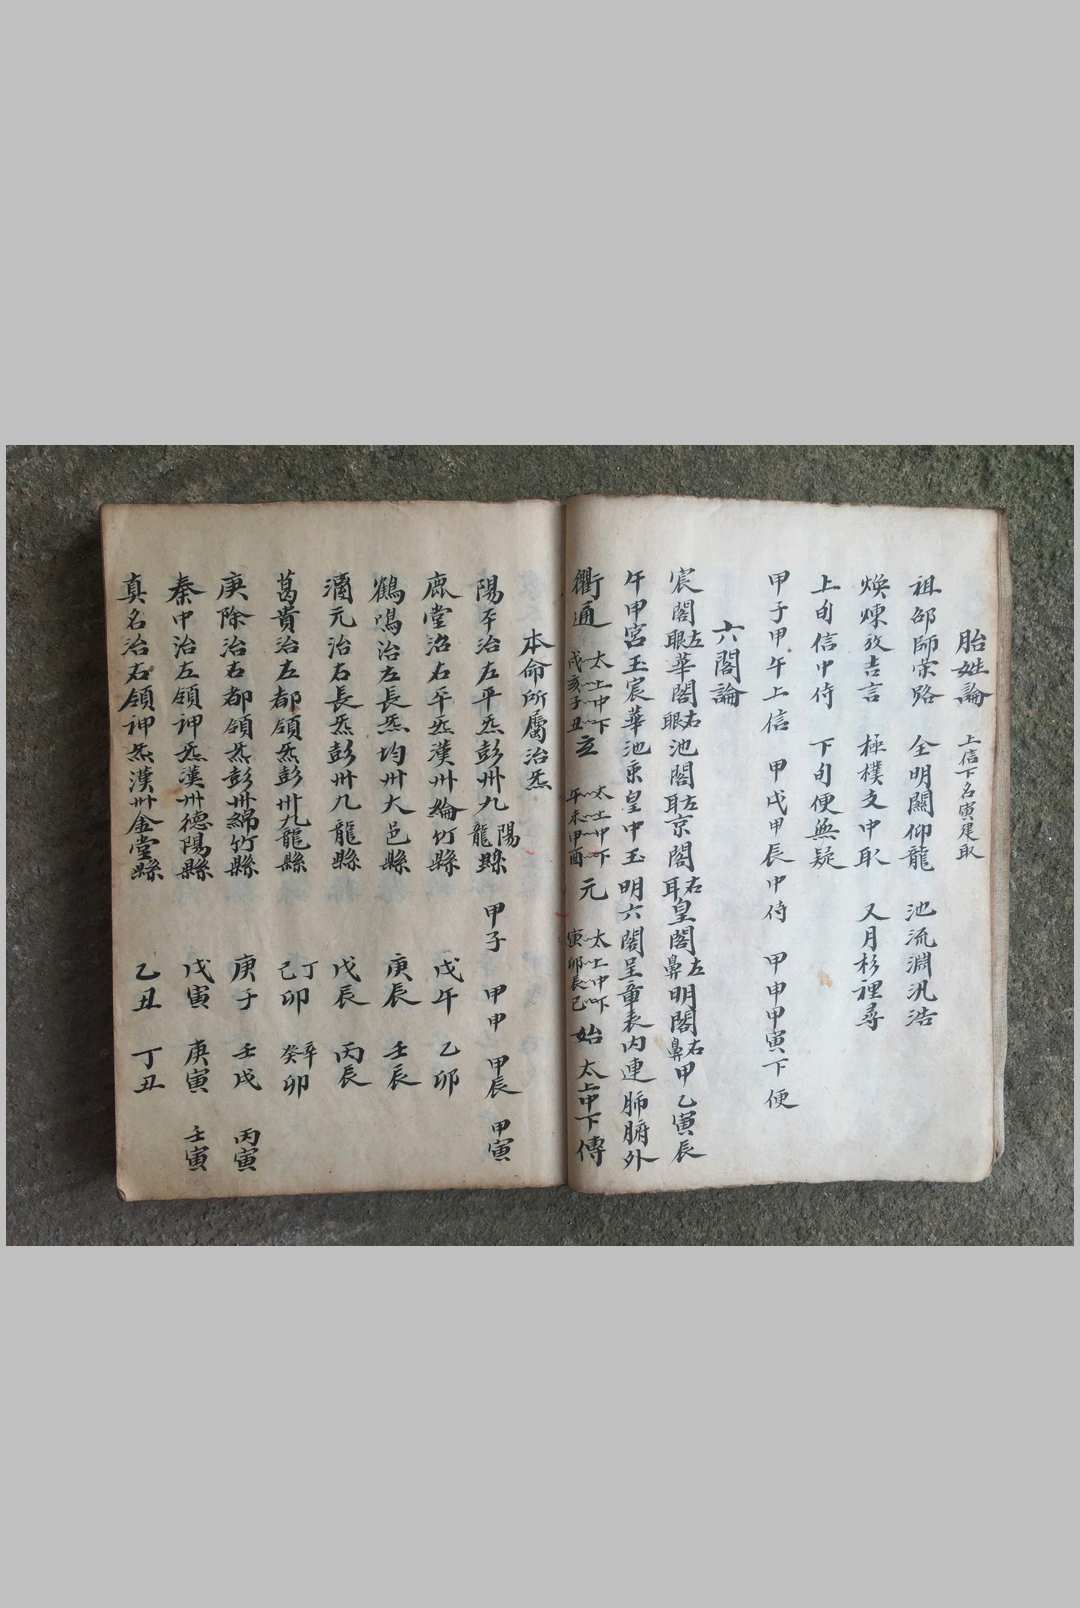 胎姓論 上信下名寅尾取
祖邵師荣路 全明關仰龍 池流淵汎浩
煥煉放吉言 極樸文中取 又月杉裡尋
上旬信中侍 下旬便無疑
甲子甲午上信 甲戌甲辰中侍 甲申甲寅下便
六閣論
宸閣眼左華閣眼右池閣耳左京閣耳右皇閣鼻左明閣鼻右甲乙寅辰
午甲宮玉宸華池京皇中玉明六閣呈章表内連肺腑外
衢通 太上中下 戌亥子丑 玄 太上中下 午未申酉 元 太上中下 寅卯辰巳 始 太上中下傳
本命所屬治炁
陽平治左平炁彭州九隴縣 陽 甲子 甲申 甲辰 甲寅
鹿堂治右平炁漢州綿竹縣 戊午 乙卯
鶴鳴治左長炁均州大邑縣 庚辰 壬辰
漓元治右長炁彭州九龍縣 戊辰 丙辰
葛貴治左都領炁彭州九龍縣 丁己卯 辛癸卯
庚除治右都領炁彭州綿竹縣 庚子 壬戌 丙寅
秦中治左領神炁漢州德陽縣 戊寅 庚寅 壬寅
真名治右領神炁漢州金堂縣 乙丑 丁丑